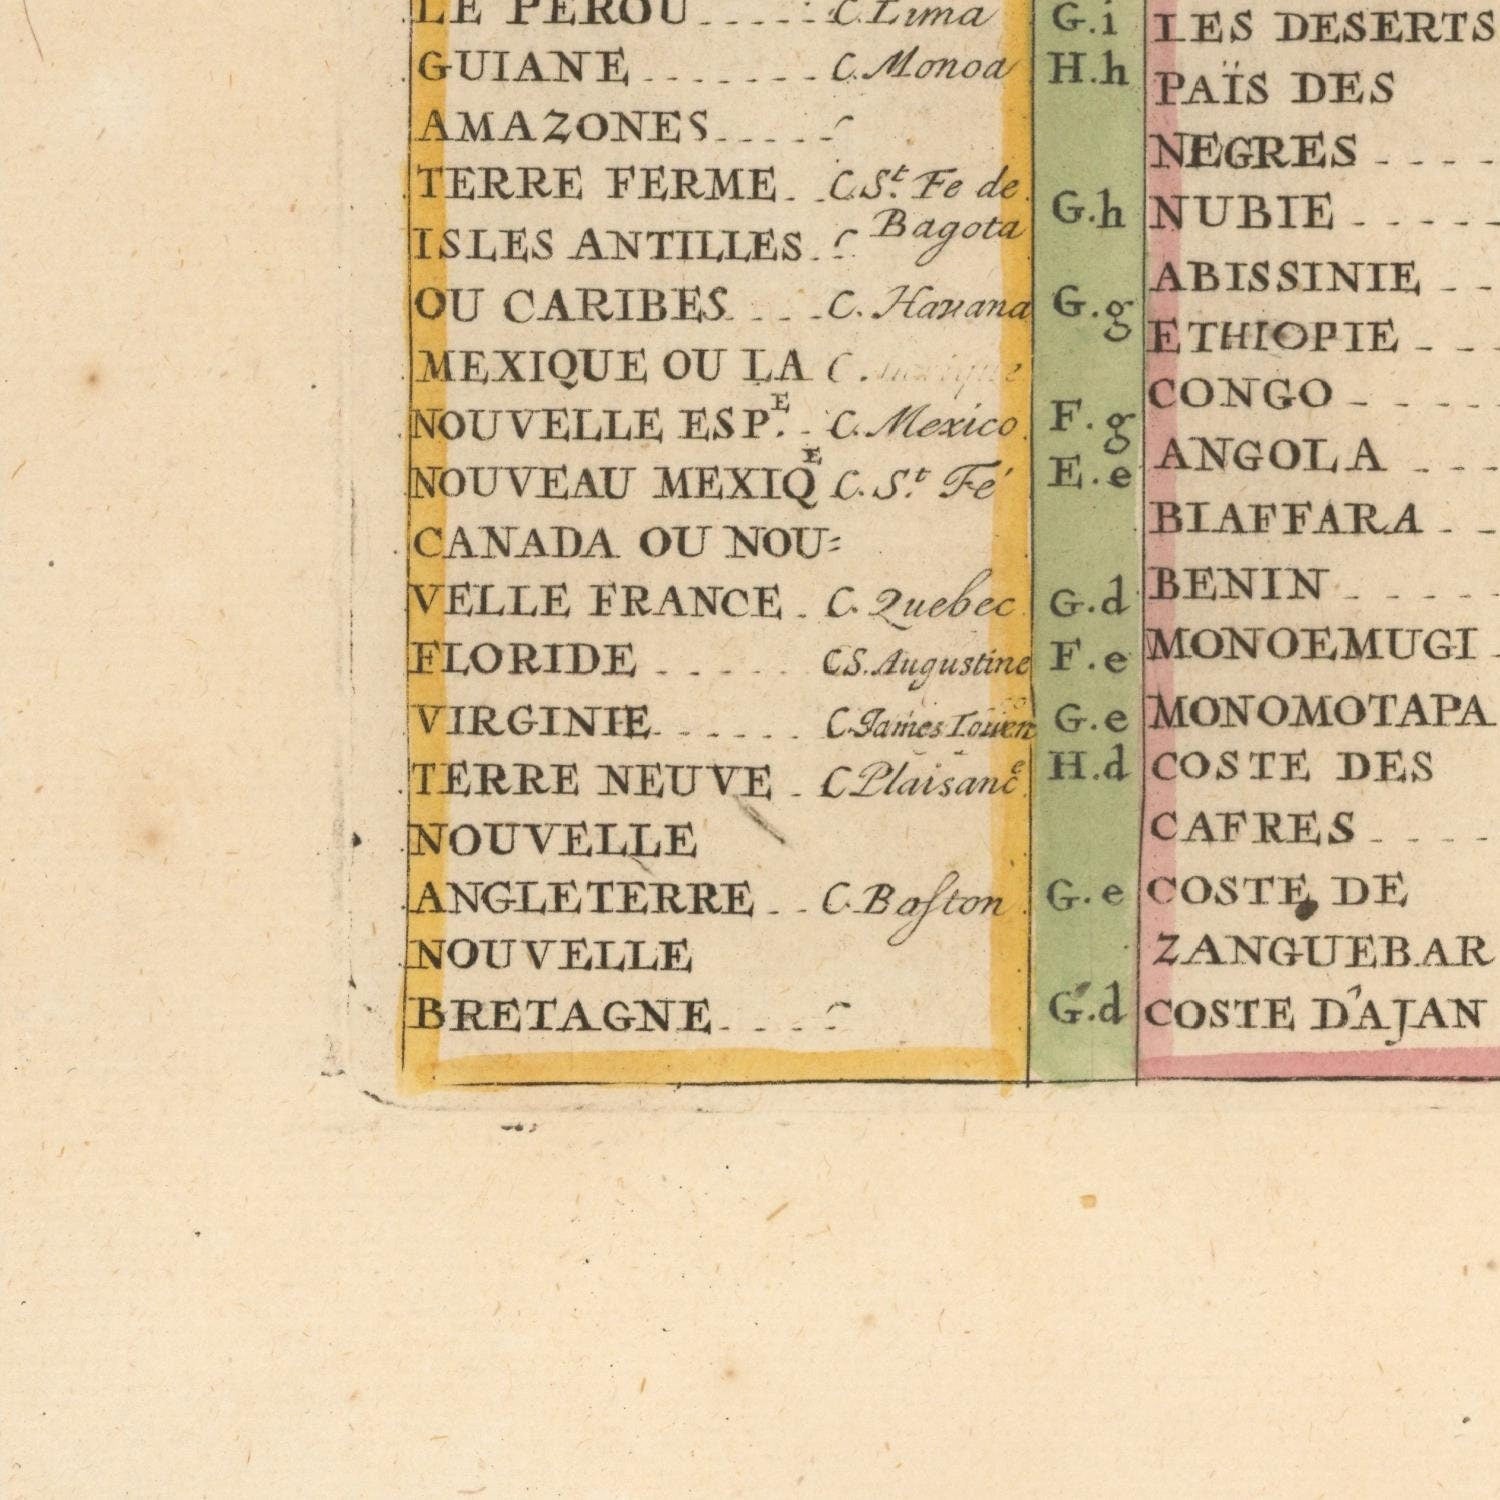 LE PEROU C. Lima G.i
GUIANE C. Monoa H.h
AMAZONES
TERRE FERME C. S.t Fe de
Bagota G.h
ISLES ANTILLES
OU CARIBES C. Havana G.g
MEXIQUE OU LA C.
NOUVELLE ESP.E C. Mexico F.g
NOUVEAU MEXIQE C. S.t Fé E.e
CANADA OU NOU=
VELLE FRANCE C. Quebec G.d
FLORIDE C S. Augustine F.e
VIRGINIE C. James Touen G.e
TERRE NEUVE C Plaisance H.d
NOUVELLE
ANGLETERRE C. Baſton G.e
NOUVELLE
BRETAGNE G.d
LES DESERTS
PAÏS DES
NEGRES
NUBIE
ABISSINIE
ETHIOPIE
CONGO
ANGOLA
BIAFFARA
BENIN
MONOEMUGI
MONOMOTAPA
COSTE DES
CAFRES
COSTE DE
ZANGUEBAR
COSTE D'AJAN